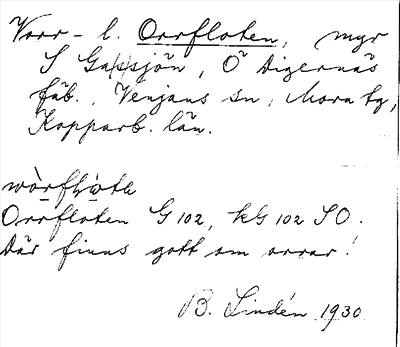 Vorr- l. Orrfloten, myr
S Gassjön, Ö Digernäs
fäb., Venjans sn, Mora tg,
Kopparb. län.
Orrfloten G 102, kG 102 SO.
Där finns gott om orrar!
B. Lindén 1930